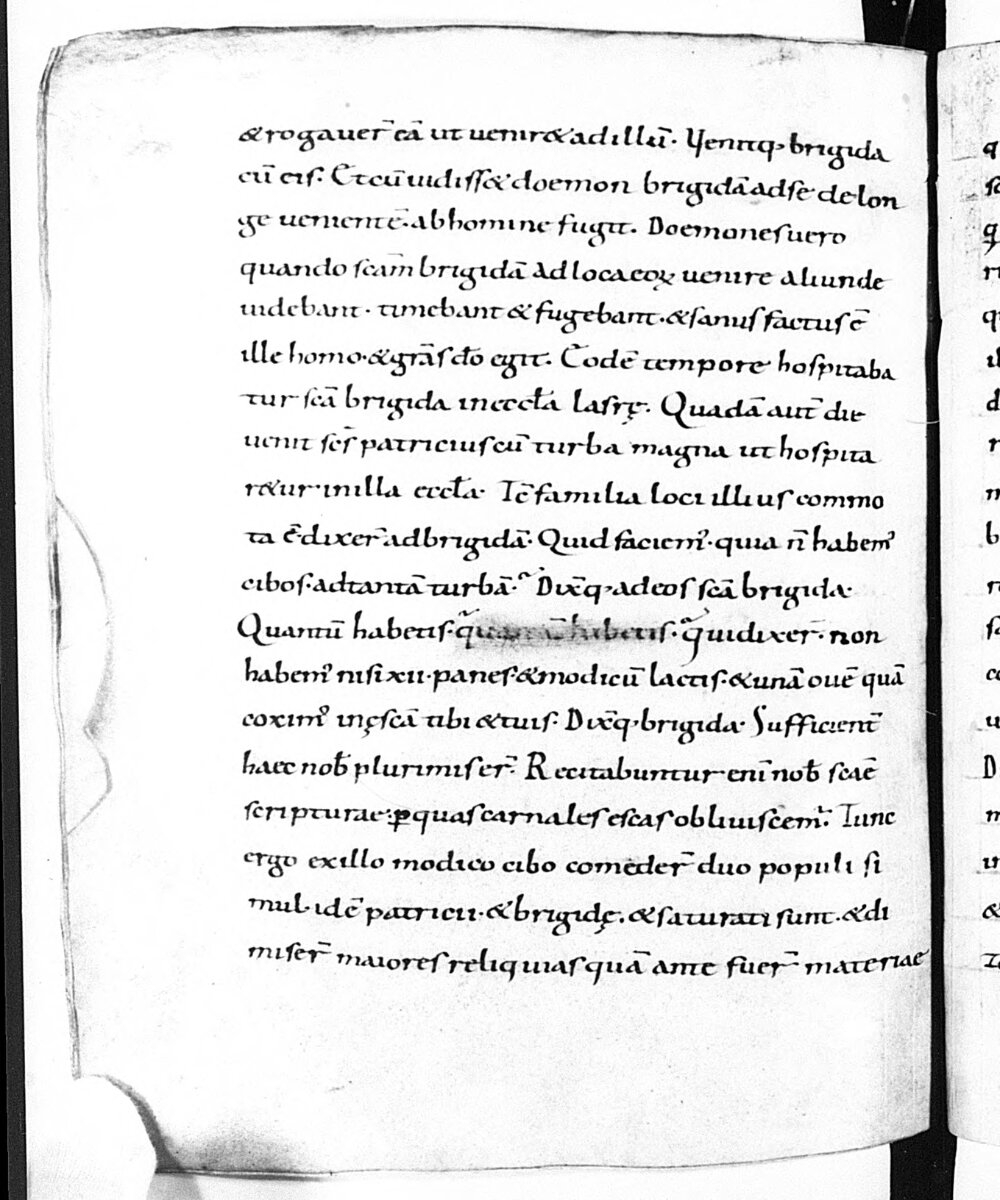 &rogauer̄ eā ut uenir& ad illū. Uenitq; brigida
cū eis. Et cū uidiss& doemon brigidā ad se de lon
ge uenientē. ab homine fugit. Doemones uero
quando scam̄ brigidā ad loca eoꝝ uenire aliunde
uidebant. timebant & fugebant. & sanus factus ē
ille homo. & grās dō egit. Eodē tempore hospitaba
tur scā brigida in eccła lasrę. Quadā aut̄ die
uenit scs̄ patricius cū turba magna ut hospita
r&ur in illa eccła. Tc̄ familia loci illius commo
ta ē. dixer̄ ad brigidā. Quid faciemꝰ. quia n̄ habemꝰ
cibos. ad tantā turbā. Dix̄q; ad eos scā brigida.
Quantū habetis. qui dixer̄. non
habemꝰ nisi xii. panes. & modicū lactis. & unā ouē quā
coximꝰ in ęscā tibi & tuis. Dix̄q; brigida. Sufficient̄
haec nob̄ plurimis er̄. Recitabuntur enī nob̄ scāe
scripturae. ꝑ quas carnales escas obliuiscemꝰ. Tunc
ergo ex illo modico cibo comeder̄ duo populi si
mul. idē patricii. & brigidę. & saturati sunt. & di
miser̄ maiores reliquias quā ante fuer̄ materiae